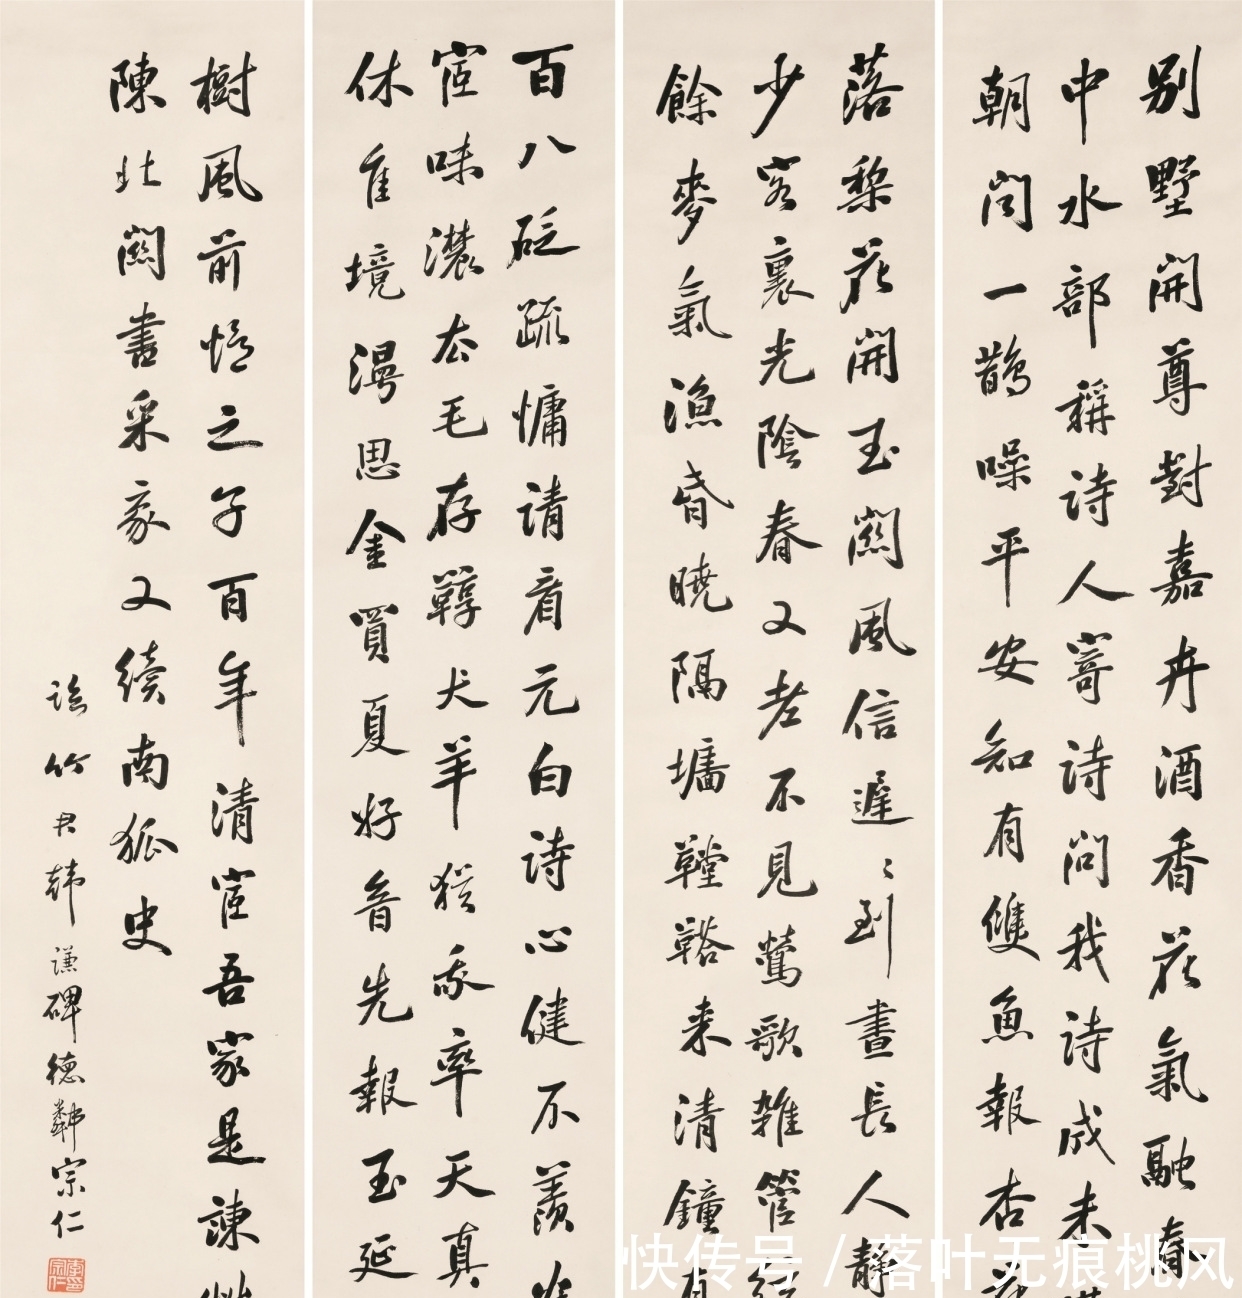 别墅開尊對嘉卉酒香花氣融春
中水部稱詩人寄詩問我詩成未
朝問一鵲噪平安知有雙魚報杏花
落梨花開玉闌風信遲遲到晝長人靜
少客裏光陰春又老不見鶯歌雜管
餘麥氣漁昏曉隔墉鞺鞳来清鐘有
百八砭疏慵請看元白詩心健不羨
宦味濃衣毛存鞟犬羊猶我率天真
休隹境漫思金買夏好音先報玉延
樹風前憶之子百年清宦吾家是諫
陳北闕書采家又續南狐史
竹君韩謙碑德鄰宗仁
李宗仁印
快传号/落叶无痕桃风